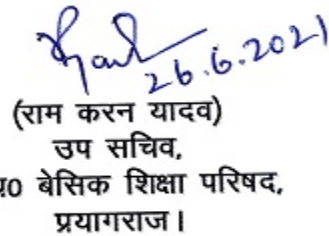 26.6.2021
(राम करन यादव)
उप सचिव,
बेसिक शिक्षा परिषद,
प्रयागराज।